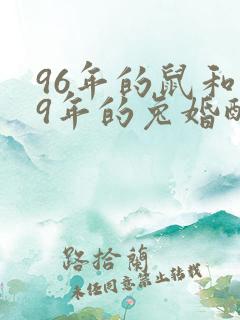 96年的鼠和
9年的兔婚配
路拾蘭
未经同意禁止转载